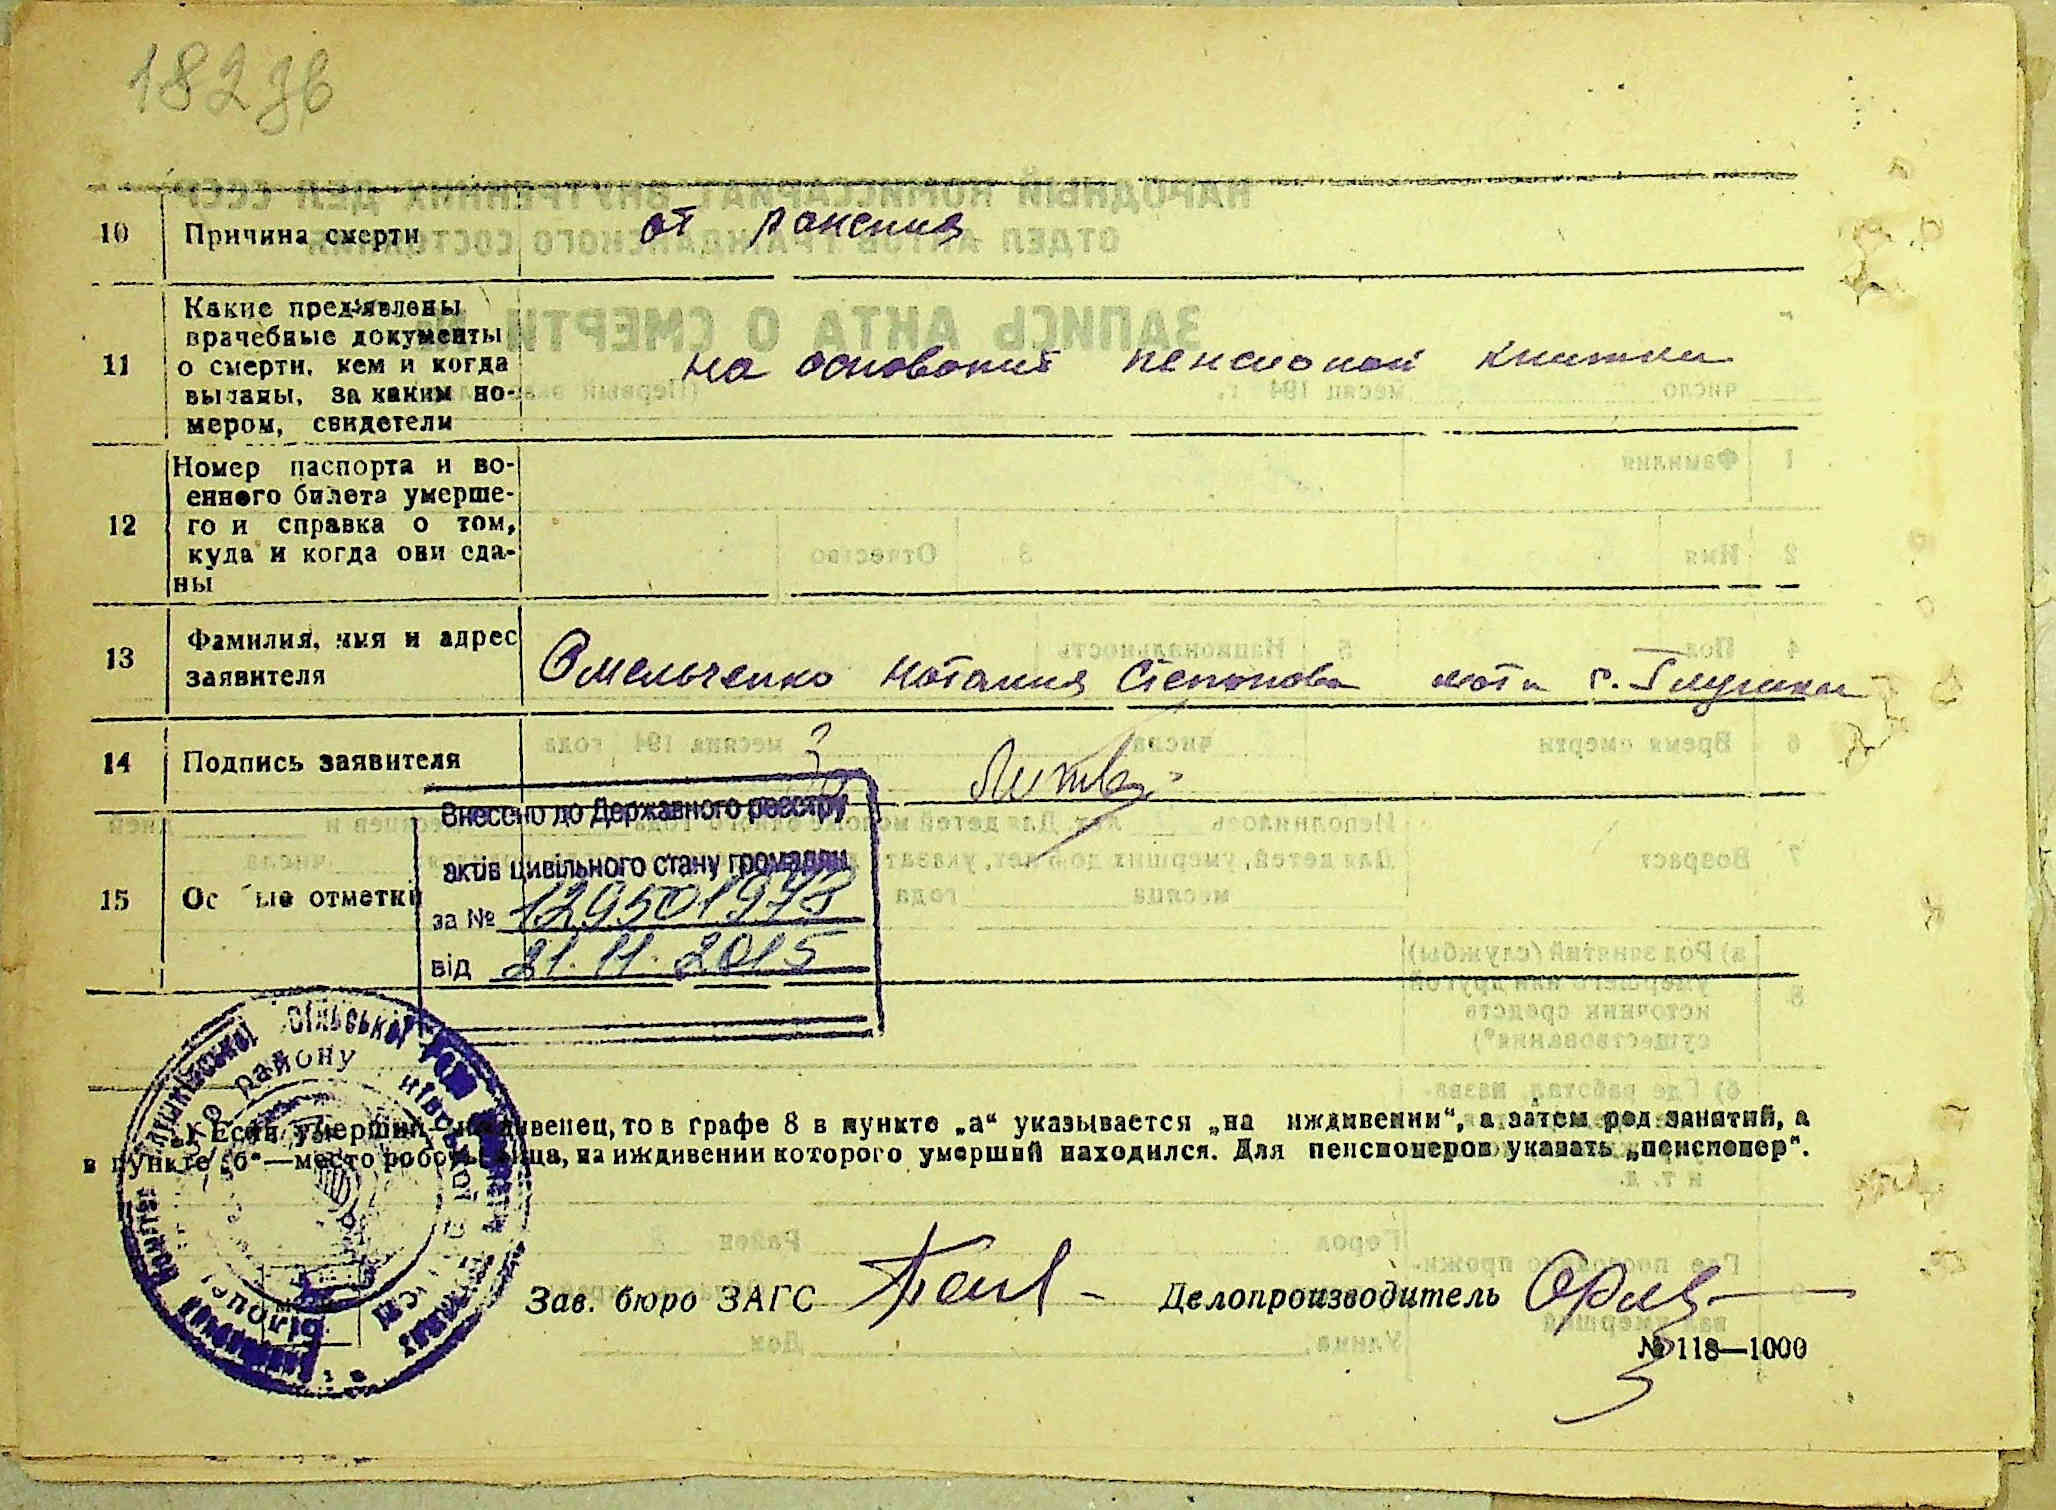 182 зв
10 Причина смерти от ранения
11 Какие пред'явлены
врачебные документы
о смерти, кем и когда
выданы, за каким но-
мером, свидетели
на основания пенсионой книжки
12 Номер паспорта и во-
енного билета умерше-
го и справка о том,
куда и когда они сда-
ны
13 Фамилия, имя и адрес
заявителя
Омельченко Наталия Степонова
14 Подпись заявителя
Внесено до Державного реєстру
актів цивільного стану громадян
за № 129501978
від 21.11.2015
15 Ос ые отметки
Если умерший иждивенец, то в графе 8 в пункте „а“ указывается „на иждивении“, а затем род занятий, а
в пункте „б“—место работы лица, на иждивении которого умерший находился. Для пенсионеров указать „пенсионер“.
Зав. бюро ЗАГС
Делопроизводитель
№ 118—1000
сільської
району